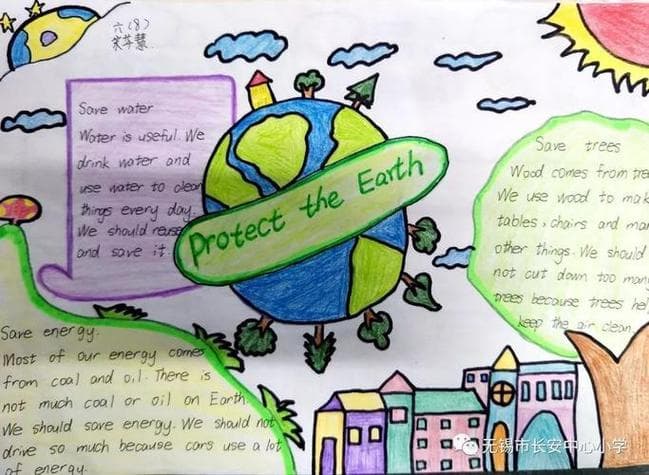 六(8)
Save water
Water is useful. We
drink water and
use water to clean
things every day.
We should reuse
and save it
Protect the Earth
Save trees
Wood comes from tre
We use wood to mak
tables, chairs and man
other things. We should
not cut down too many
trees because trees hel
keep the air clean.
Save energy.
Most of our energy comes
from coal and oil. There is
not much coal or oil on Earth.
We should save energy. We should not
drive so much because cars use a lot
of energy.
无锡市长安中心小学